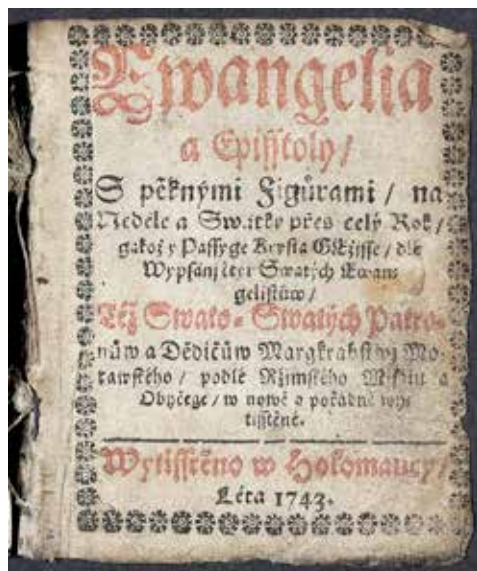 Ewangelia
a Episstoly/
S pěknými Figůrami / na
Neděle a Swátky přes celý Rok/
gakož y Passyge Krysta Gežjsse / dle
Wypsánj čtyr Swatých Ewan-
gelistůw /
Též Swato-Swatých Patro-
nůw a Dědičůw Margkrabstwj Mo-
rawského / podlé Ržjmského Missálu a
Obyčege / w nowě a pořádně wy-
tisstěné.
Wytisstěno w Holomaucy/
Léta 1743.